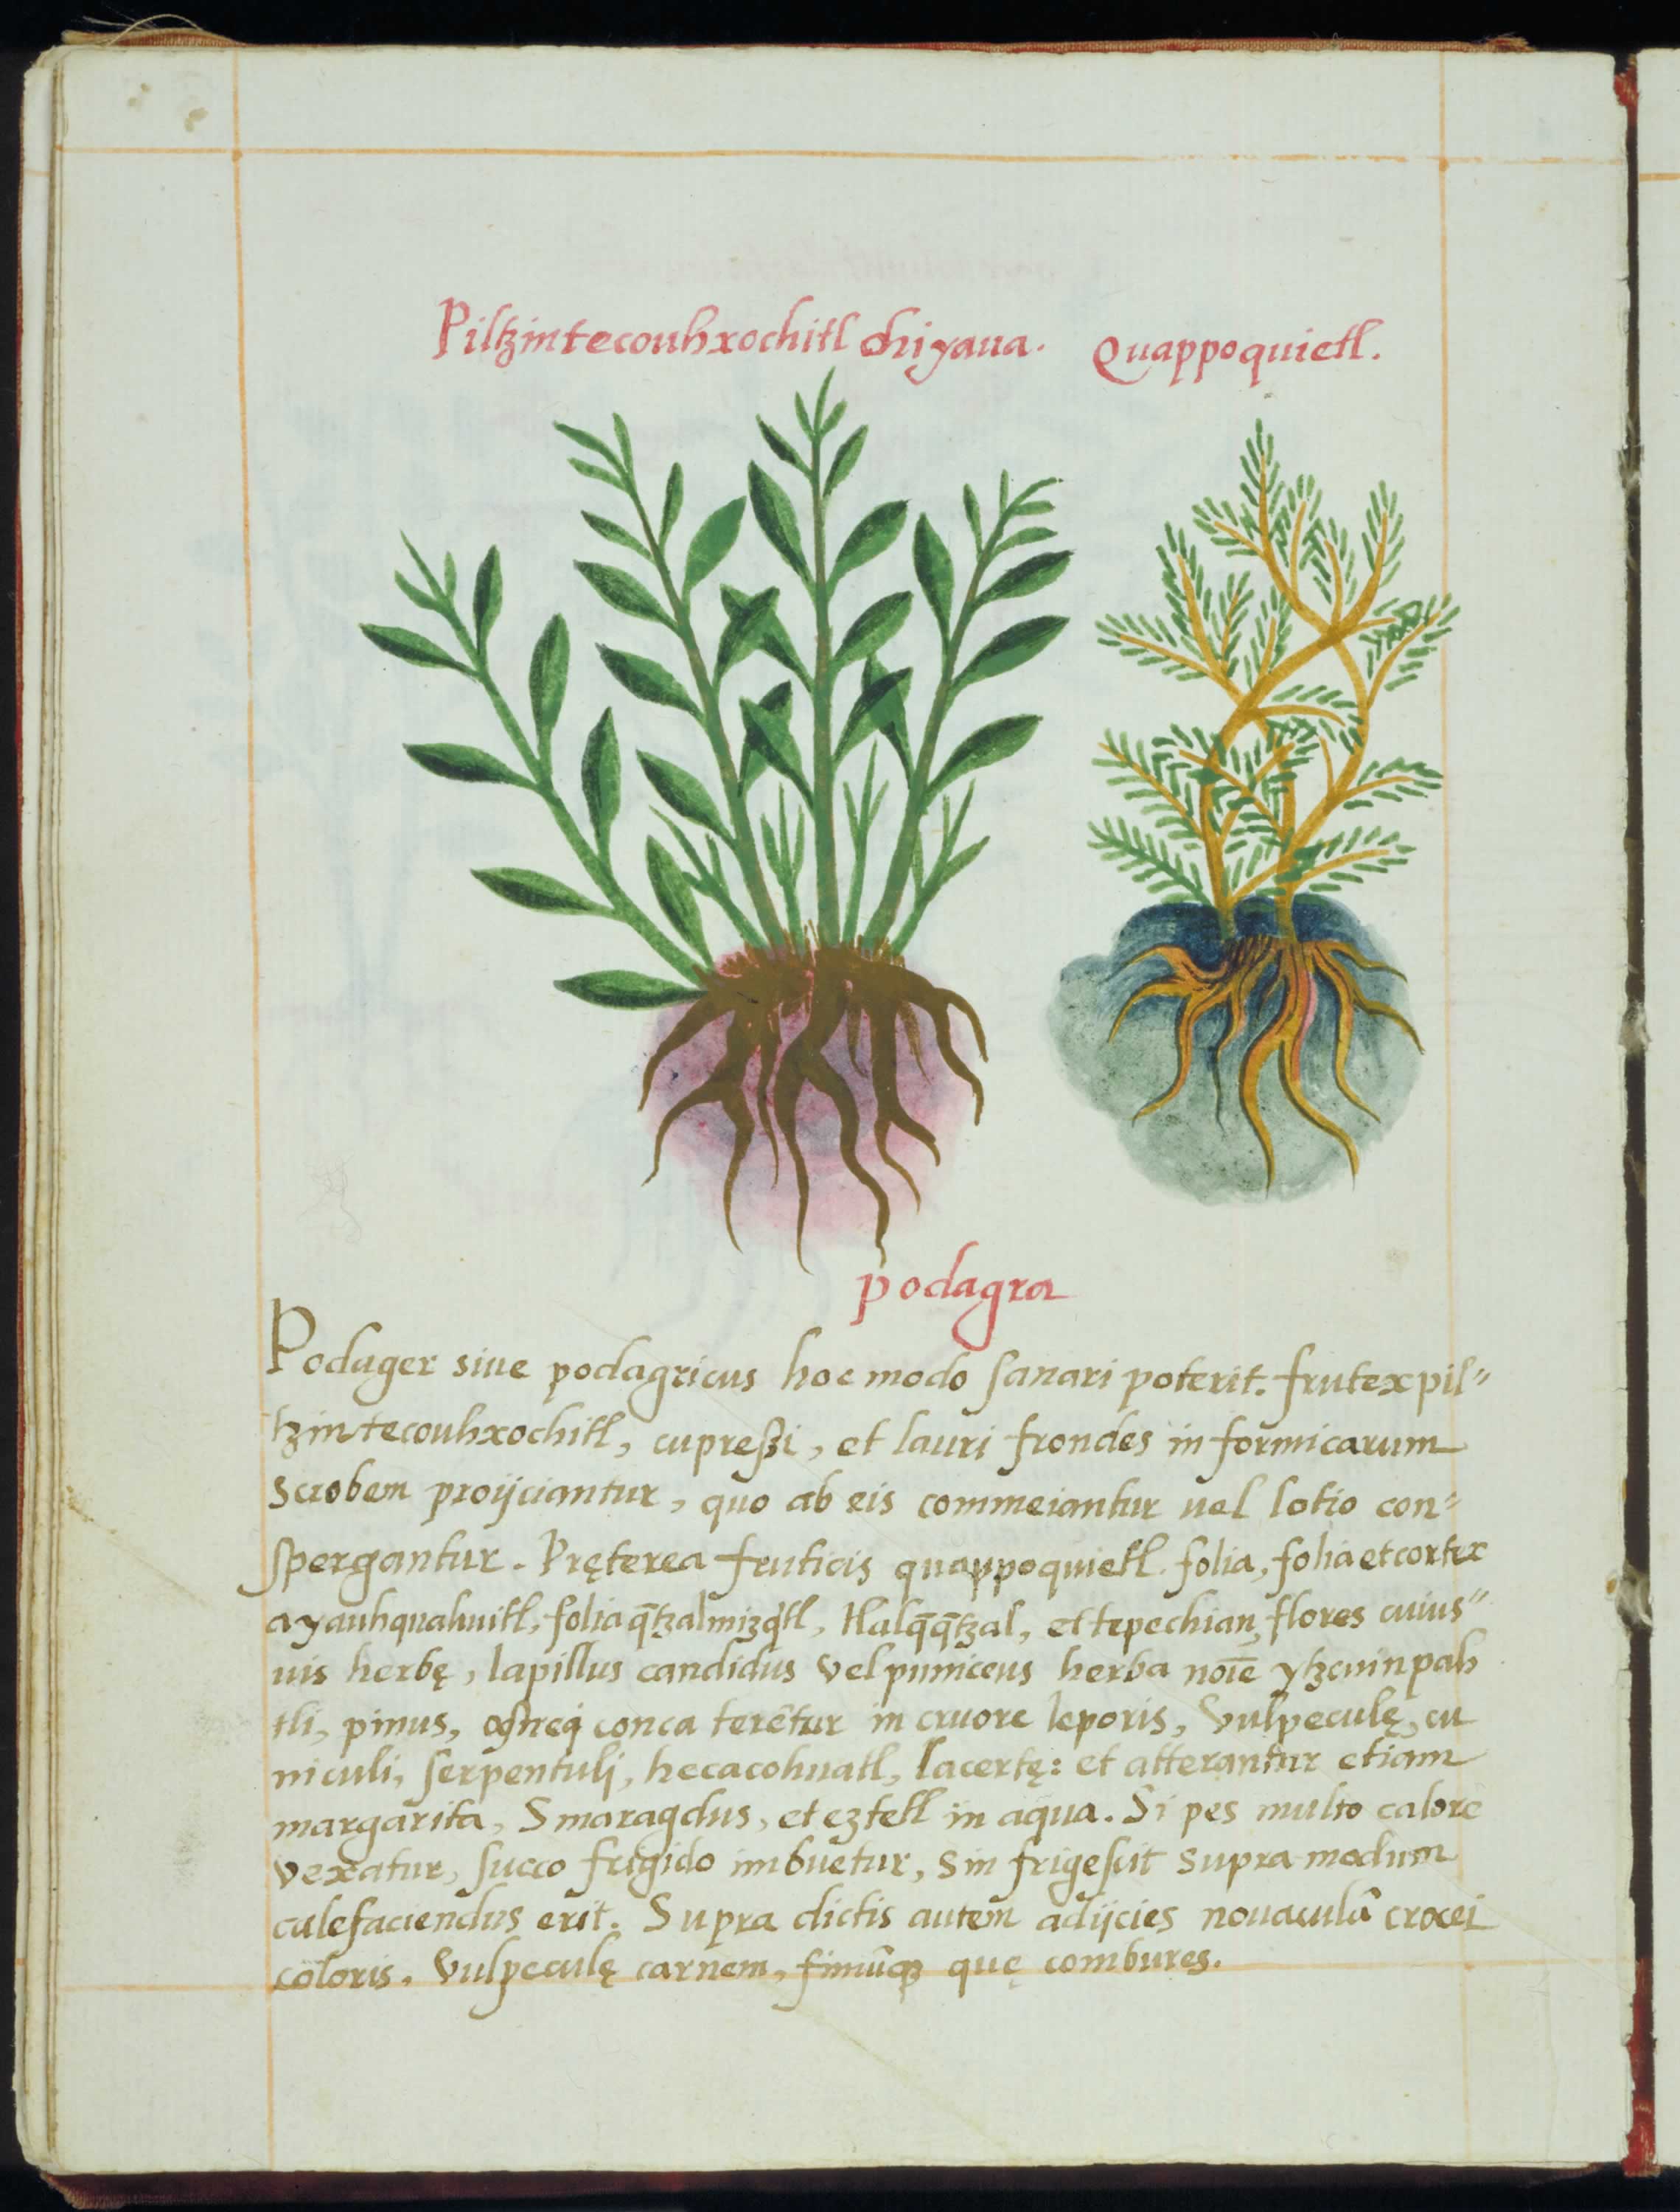 Piltzintecouhxochitl chiyaua. Quappoquietl.
podagra
Podager siue podagricus hoc modo sanari poterit. frutex pil"
tzintecouhxochitl, cupreßi, et lauri frondes in formicarum
scrobem proijciantur, quo ab eis commeiantur uel lotio con"
spergantur. Pręterea fruticis quappoquietl folia, folia et cortex
ayauhquahuitl, folia q̄tzalmizq̇tl, tlalq̄q̄tzal, et tepechian, flores cuius"
uis herbę, lapillus candidus vel puniceus herba noīe ytzcuinpah
tli, pinus, conca terētur in cruore leporis, vulpeculę, cu
niculi, serpentuli, hecacohuatl, lacertę: et atterantur etiam
margarita, Smaragdus, et eztetl in aqua. Si pes multo calore
vexatur, succo frigido imbuetur, sin frigescit supra modum
calefaciendus erit. Supra dictis autem adijcies nouaculā crocei
coloris, vulpeculę carnem, fimūq3 quę combures.